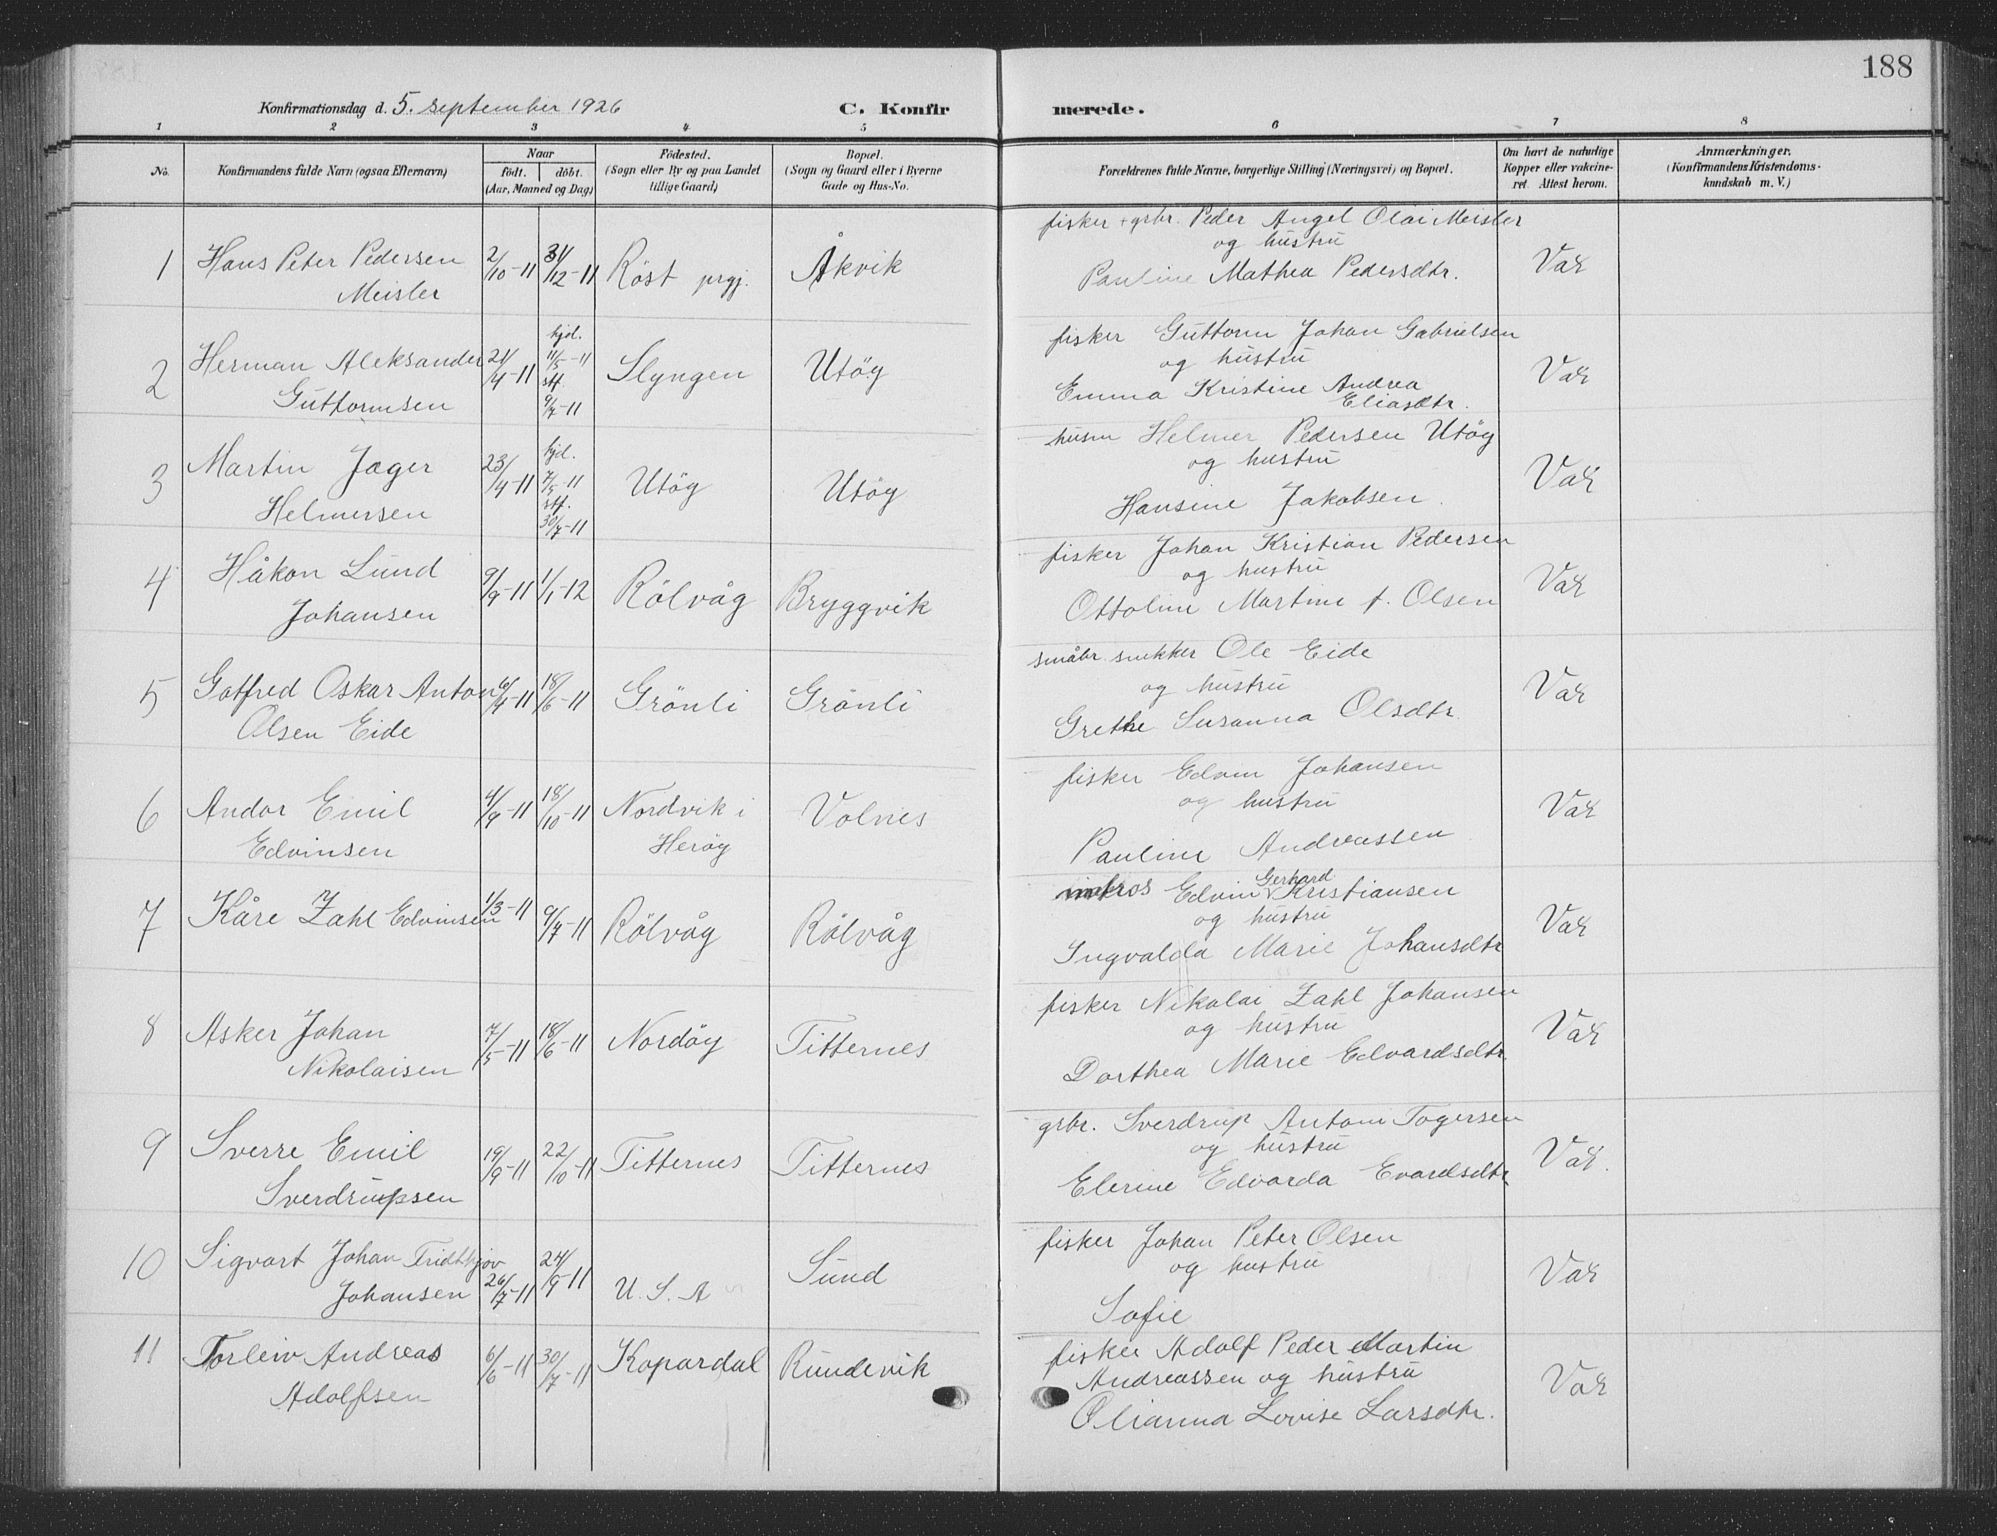 188
Konfirmationsdag d. 5. september 1926
C. Konfir merede.
1 2 3 4 5 6 7 8
No.
Konfirmandens fulde Navn (ogsaa Efternavn)
Naar
født. døbt.
(Aar, Maaned og Dag)
Fødested.
(Sogn eller By og paa Landet
tillige Gaard)
Bopæl.
(Sogn og Gaard eller i Byerne
Gade og Hus-No.
Forældrenes fulde Navne, borgerlige Stilling (Næringsvei) og Bopæl.
Om havt de naturlige
Kopper eller vakcine-
ret. Attest herom.
Anmærkninger.
(Konfirmandens Kristendoms-
kundskab m. V.)
1 Hans Peter Pedersen
Meisler
2/10-11 31/12-11 Röst prgj. Åkvik
fisker + grbr. Peder Angel Olai Meisler
og hustru
Pauline Mathea Pedersdtr.
Vac
2 Herman Aleksander
Guttormsen
21/4-11
hjd.
11/5-11
stf.
9/7-11
Slyngen Utöy
fisker Guttorm Johan Gabrielsen
og hustru
Emma Kristine Andrea
Eliasdtr.
Vac
3 Martin Jæger
Helmersen
23/4-11
hjd.
7/5-11
stf.
30/7-11
Utöy Utöy
husm Helmer Pedersen Utöy
og hustru
Hansine Jakobsen.
Vac
4 Håkon Lund
Johansen
9/9-11 1/1-12 Rölvåg Bryggvik
fisker Johan Kristian Pedersen
og hustru
Ottoline Martine f. Olsen
Vac
5 Gotfred Oskar Anton
Olsen Eide
6/4-11 18/6-11 Grönli Grönli
småbr. snekker Ole Eide
og hustru
Grethe Susanna Olsdtr.
Vac
6 Andor Emil
Edvinsen
4/9-11 18/10-11 Nordvik i
Heröy
Volnes
fisker Edvin Johansen
og hustru
Pauline Andreassen
Vac
7 Kåre Zahl Edvinsen
1/3-11 9/7-11 Rölvåg Rölvåg
Edvin Gerhard Kristiansen
og hustru
Ingvalda Marie Johansdtr
Vac
8 Asker Johan
Nikolaisen
7/5-11 18/6-11 Nordöy Titternes
fisker Nikolai Zahl Johansen
og hustru
Dorthea Marie Edvardsdtr.
Vac
9 Sverre Emil
Sverdrupsen
19/9-11 22/10-11 Titternes Titternes
grbr. Sverdrup Antom Togersen
og hustru
Elerine Edvarda Evardsdtr
Vac.
10 Sigvart Johan Fridthjov
Johansen
26/7-11 24/9-11 U. S. A Sund
fisker Johan Peter Olsen
og hustru
Sofie
Vac
11 Torleiv Andreas
Adolfsen
6/6-11 30/7-11 Kopardal Rundevik
fisker Adolf Peder Martin
Andreassen og hustru
Olianna Lovise Larsdtr.
Vac